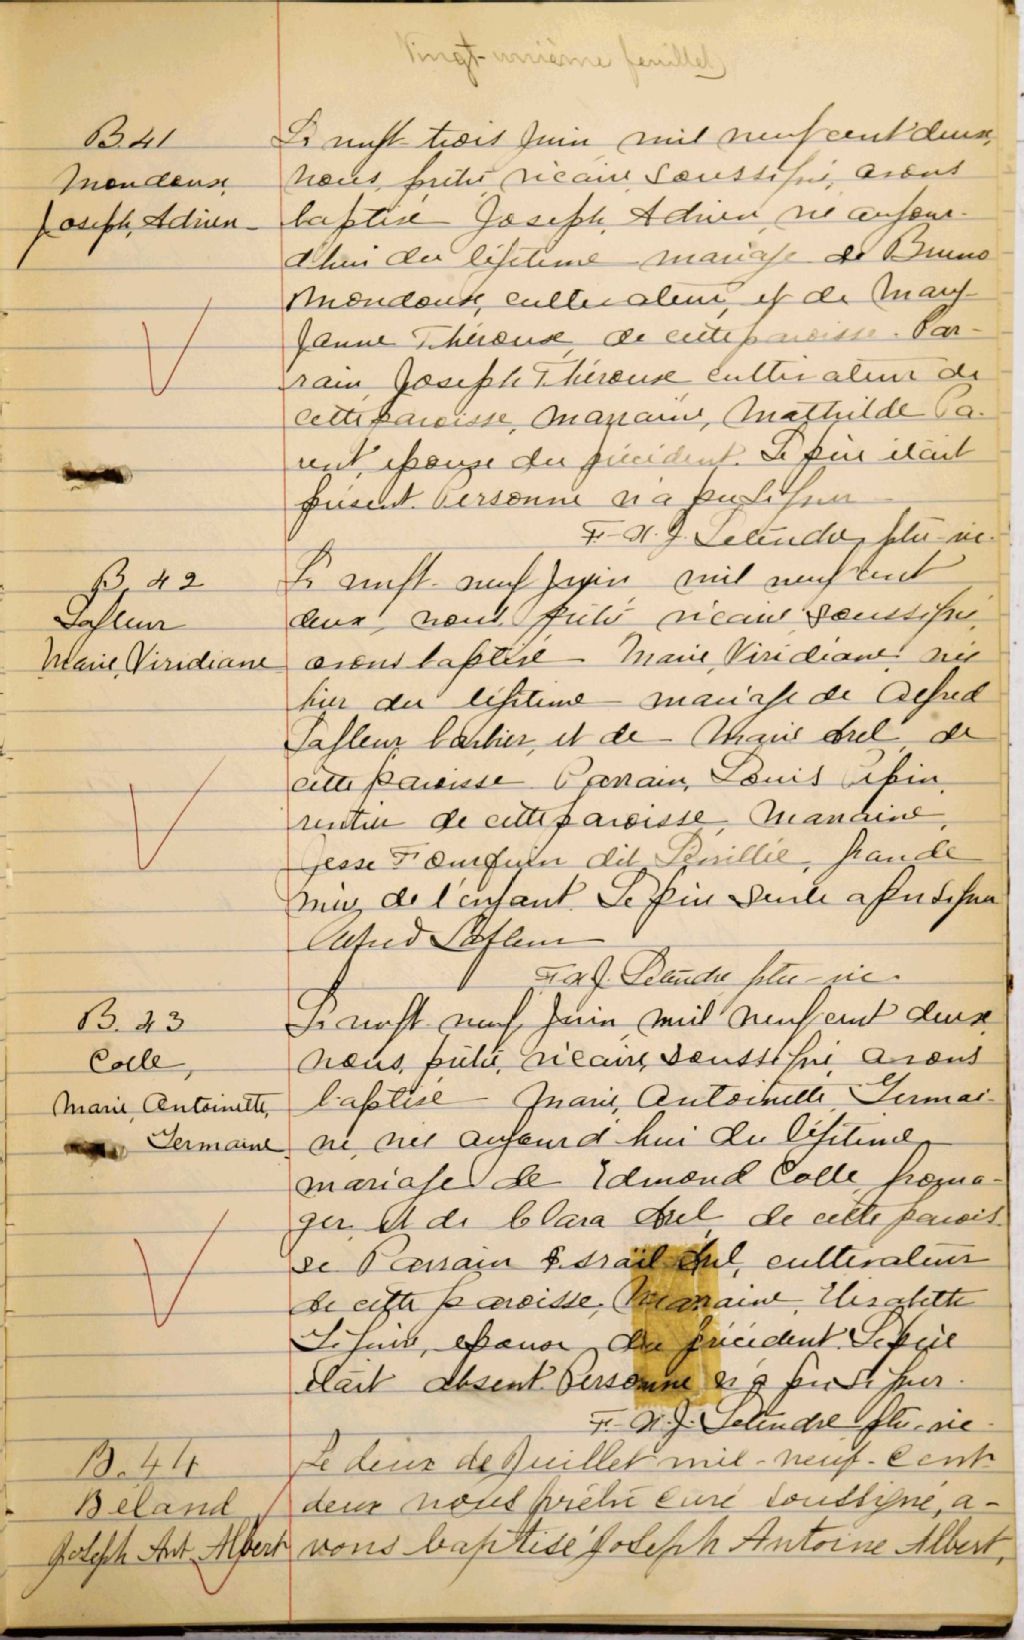 Vingt-unième feuillet
B. 41
Mondoux,
Joseph, Adrien
Le vingt-trois Juin mil neuf cent deux,
nous, prêtre, vicaire, soussigné, avons
baptisé Joseph, Adrien, né aujour-
d'hui du légitime mariage de Bruno
Mondoux, cultivateur, et de Mary-
Janne Théroux, de cette paroisse. Par-
rain, Joseph Théroux cultivateur de
cette paroisse, marraine, Mathilde Pa-
rent, épouse du précident. Le père était
présent. Personne n'a pu signer
F.-X.J. Letendre, ptre-vic.
B. 42
Lafleur
Marie, Viridiane
Le vingt-neuf Juin mil neuf cent
deux, nous, prêtre vicaire soussigné,
avons baptisé Marie, Viridiane, née
hier du légitime mariage de Alfred
Lafleur, barbier, et de Marie Avel, de
cette paroisse Parrain, Louis Pépin,
rentier de cette paroisse, Marraine,
dit grande
mère de l'enfant. Le père seule a pu signer
Alfred Lafleur
F.X.J. Letendre ptre-vic.
B. 43
Colle,
Marie, Antoinette,
Germaine
Le vingt-neuf, Juin, mil neuf cent deux,
nous, prêtre, vicaire, soussigné, avons
baptisé Marie, Antoinette, Germai-
ne, née aujourd'hui du légitime
mariage de Edmond Colle, froma-
ger, et de Clara Avel, de cette parois-
se Parrain Israïl Avel, cultivateur
de cette paroisse, Marraine, Elisabette
épouse du précident. Le père
était absent. Personne n'a pu signer.
F.-X.J. Letendre ptre-vic.
B. 44
Béland
Joseph Ant. Albert
Le deux de Juillet mil-neuf-cent-
deux nous prêtre curé soussigné, a-
vons baptisé Joseph Antoine Albert,